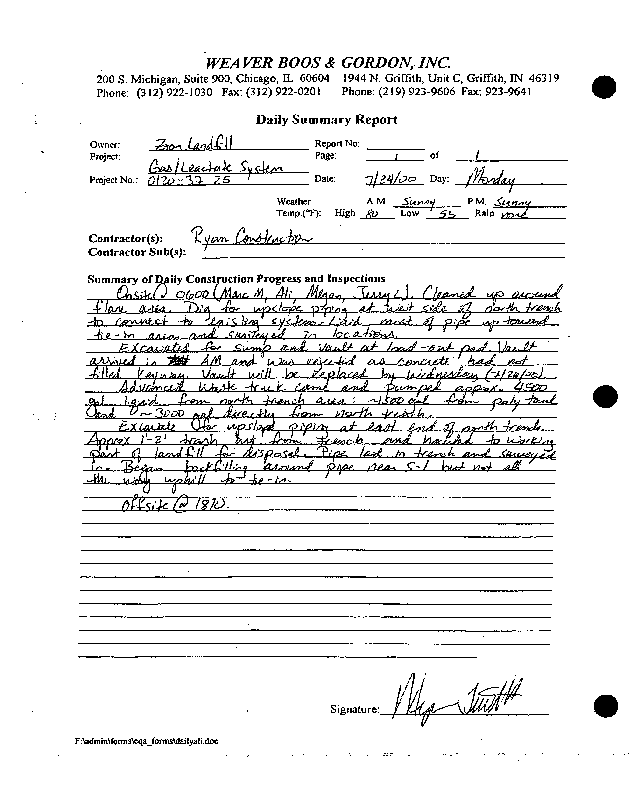 WEAVER BOOS & GORDON, INC.
200 S. Michigan, Suite 900, Chicago, IL 60604 1944 N. Griffith, Unit C, Griffith, IN 46319
Phone: (312) 922-1030 Fax: (312) 922-0201 Phone: (219) 923-9606 Fax: 923-9641
Daily Summary Report
Owner: Zion Landfill Report No:
Project: Gas/Leachate System Page: 1 of 1
Project No.: 0120-37 25 Date: 7/24/00 Day: Monday
Weather A M Sunny P M. Sunny
Temp.(°F): High 80 Low 55 Rain none
Contractor(s): Ryan Construction
Contractor Sub(s):
Summary of Daily Construction Progress and Inspections
Onsite @ 0600 (Marc M, Ali, Megan, Jerry L). Cleaned up around
flare area. Dig for upslope piping at west side of north trench
to connect to existing system. Laid most of pipe up toward
tie-in areas and surveyed in locations.
Excavated for sump and vault at load-out pad. Vault
arrived in AM and was rejected as concrete had not
filled keyway. Vault will be replaced by Wednesday
Advanced Waste truck came and pumped approx. 4500
gal liquid from north trench area: ~1500 gal from poly tank
and ~3000 gal directly from north trench.
Excavate for upslope piping at east end of north trench.
Approx 1-2' trash from trench and hauled to working
part of landfill for disposal. Pipe laid in trench and surveyed
in. Began backfilling around pipe near S-1 but not all
the way uphill to tie-in.
Offsite @ 1810.
Signature:
F:\admin\forms\cqa_forms\dailyali.doc